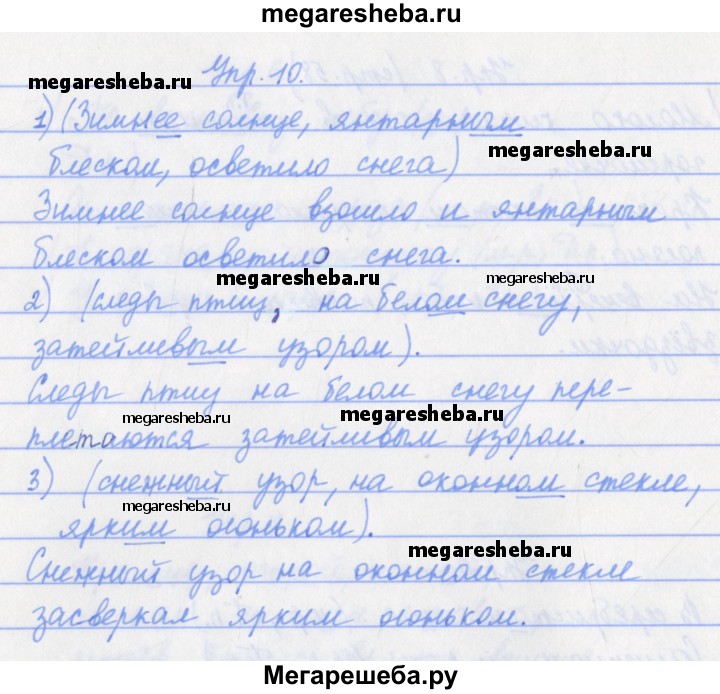 megaresheba.ru
Упр. 10.
megaresheba.ru
1) (Зимнее солнце, янтарным
блеском, осветило снега)
megaresheba.ru
Зимнее солнце взошло и янтарным
блеском осветило снега.
megaresheba.ru
megaresheba.ru
2) (следы птиц, на белом снегу,
затейливым узором).
Следы птиц на белом снегу пере-
megaresheba.ru
megaresheba.ru
плетаются затейливым узором.
3) (снежный узор, на оконном стекле,
megaresheba.ru
ярким огоньком).
megaresheba.ru
Снежный узор на оконном стекле
засверкал ярким огоньком.
Мегарешеба.ру